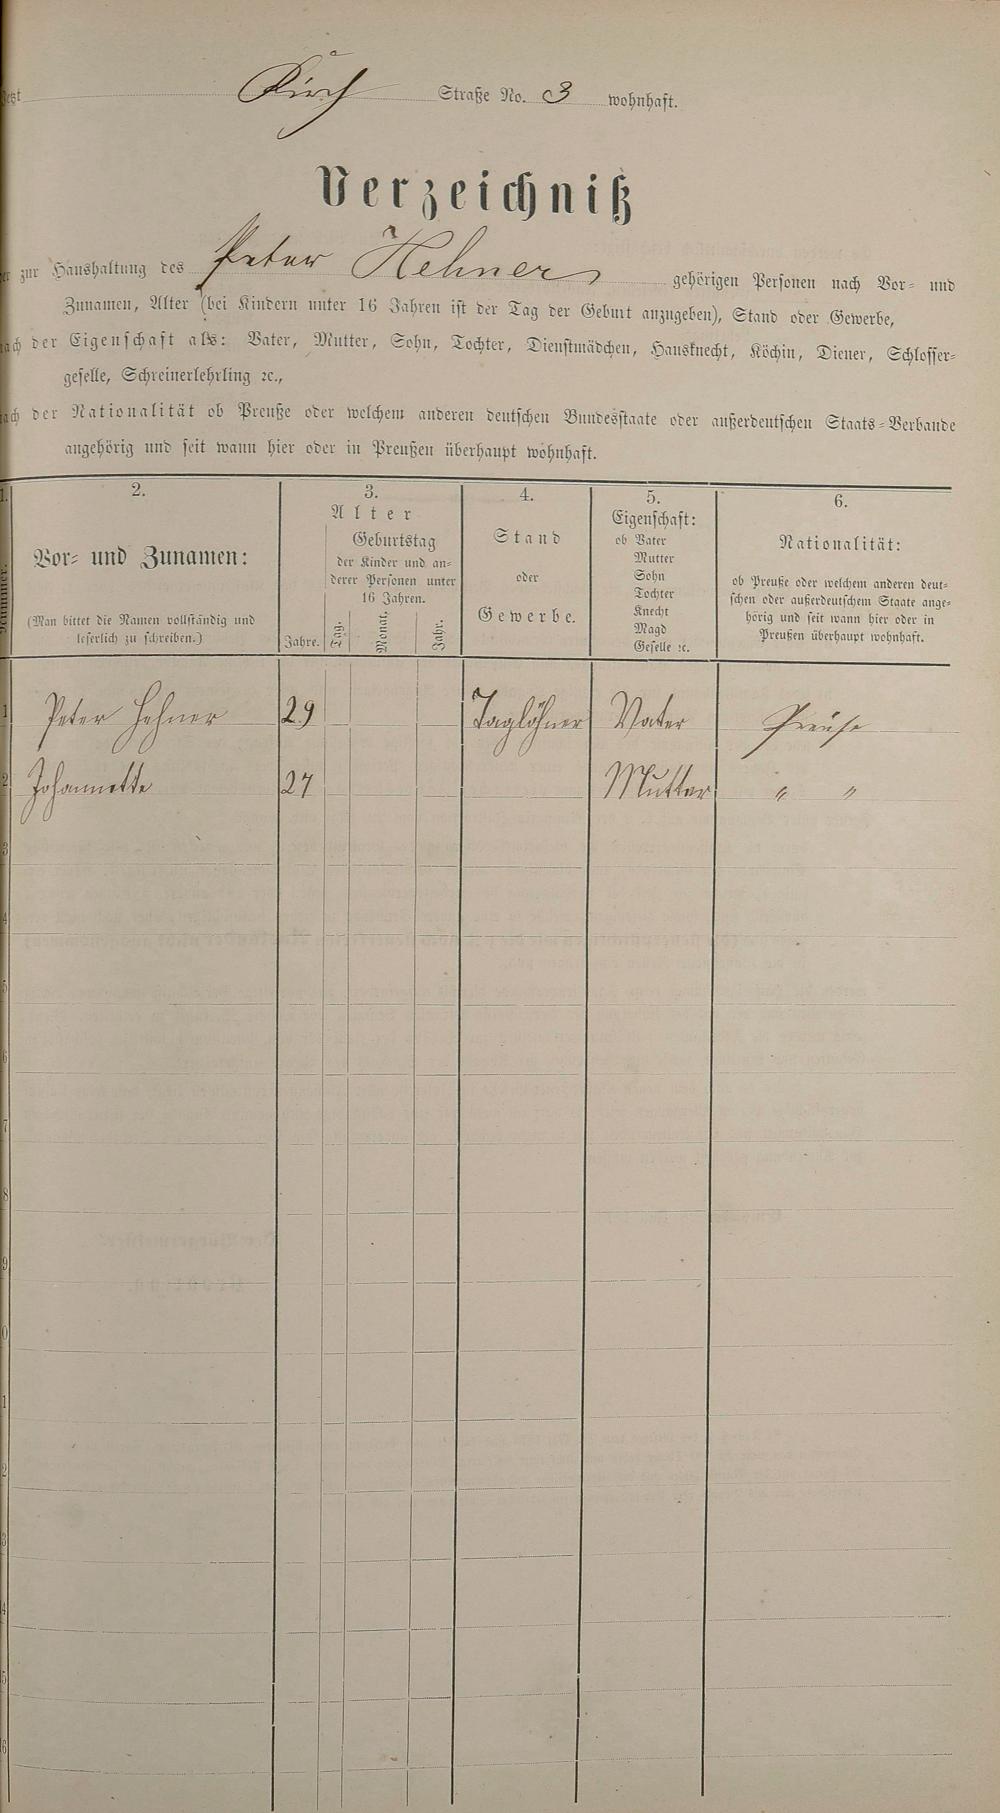 Jetzt Kirch Straße No. 3 wohnhaft.
Verzeichniß
der zur Haushaltung des Peter Hehner gehörigen Personen nach Vor- und
Zunamen, Alter (bei Kindern unter 16 Jahren ist der Tag der Geburt anzugeben), Stand oder Gewerbe,
nach der Eigenschaft als: Vater, Mutter, Sohn, Tochter, Dienstmädchen, Hausknecht, Köchin, Diener, Schlosser-
geselle, Schreinerlehrling ꝛc.,
nach der Nationalität ob Preuße oder welchem anderen deutschen Bundesstaate oder außerdeutschen Staats-Verbande
angehörig und seit wann hier oder in Preußen überhaupt wohnhaft.
1.
Nummer.
2.
Vor- und Zunamen:
(Man bittet die Namen vollständig und
leserlich zu schreiben.)
3.
Alter
Jahre.
Geburtstag
der Kinder und an-
derer Personen unter
16 Jahren.
Tag.
Monat.
Jahr.
4.
Stand
oder
Gewerbe.
5.
Eigenschaft:
ob Vater
Mutter
Sohn
Tochter
Knecht
Magd
Geselle ꝛc.
6.
Nationalität:
ob Preuße oder welchem anderen deut-
schen oder außerdeutschem Staate ange-
hörig und seit wann hier oder in
Preußen überhaupt wohnhaft.
1 Peter Hehner 29 Taglöhner Vater Preuße
2 Johannette 27 Mutter " "
3
4
5
6
7
8
9
0
1
2
3
4
5
6